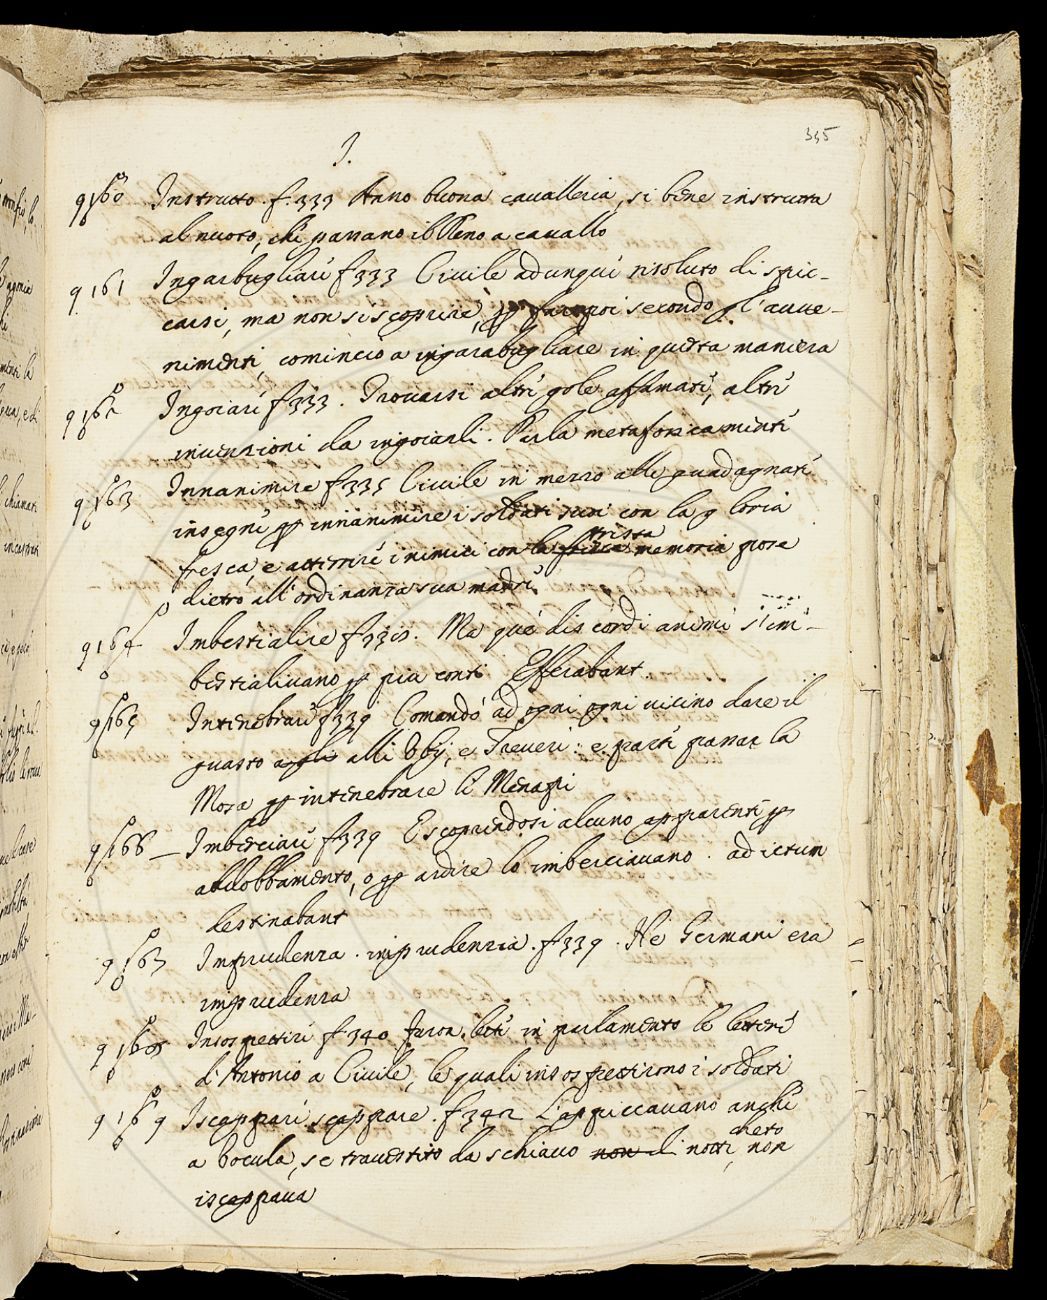 I.
335
9160 Instrutto. f. 339 Anno buona cavalleria, si bene instrutta
al nuoto, che passano il Reno a cavallo
9161 Ingarbugliare f 333 Civile adunque risoluto di spic-
carsi, ma non si scoprire, poi secondo gl'auue-
nimenti, cominciò a ingarabugliare in questa maniera
9162 Ingoiare f 333. Trovarsi altre gole affamate, altre
inuenzioni da ingoiarli. Parla metaforicamente
9163 Innanimire f 335 Civile in mezzo alle guadagnate
insegne per innanimire i soldati suoi con la gloria
fresca, e atterrire i nimici con la trista memoria pose
dietro all'ordinanza sua madre
9164 Imbestialire f 335. Ma que discordi animi s'im-
bestialiuano per piu conti Efferabant
9165 Intenebrare f 339 Comandò ad ogni ogni uicino dare il
guasto agli alli Ubij, e Treueri: e parte passar la
Mosa per intenebrare li Menapi
9166 Imberciare f 339 E scoprendosi alcuno apparente per
addobbamento, o per ardire lo imberciauano. ad ictum
destinabant
9167 Imprudenza. imprudenzia. f 339. Ne Germani era
imprudenza
9168 Insospettire f 340 Furon lette in parlamento le lettere
d'Antonio a Civile, le quali insospettirono i soldati
9169 Iscappare scappare. f 342 L'appiccauano anche
a Vocula, se trauestito da schiauo non di notte, cheto non
iscappaua